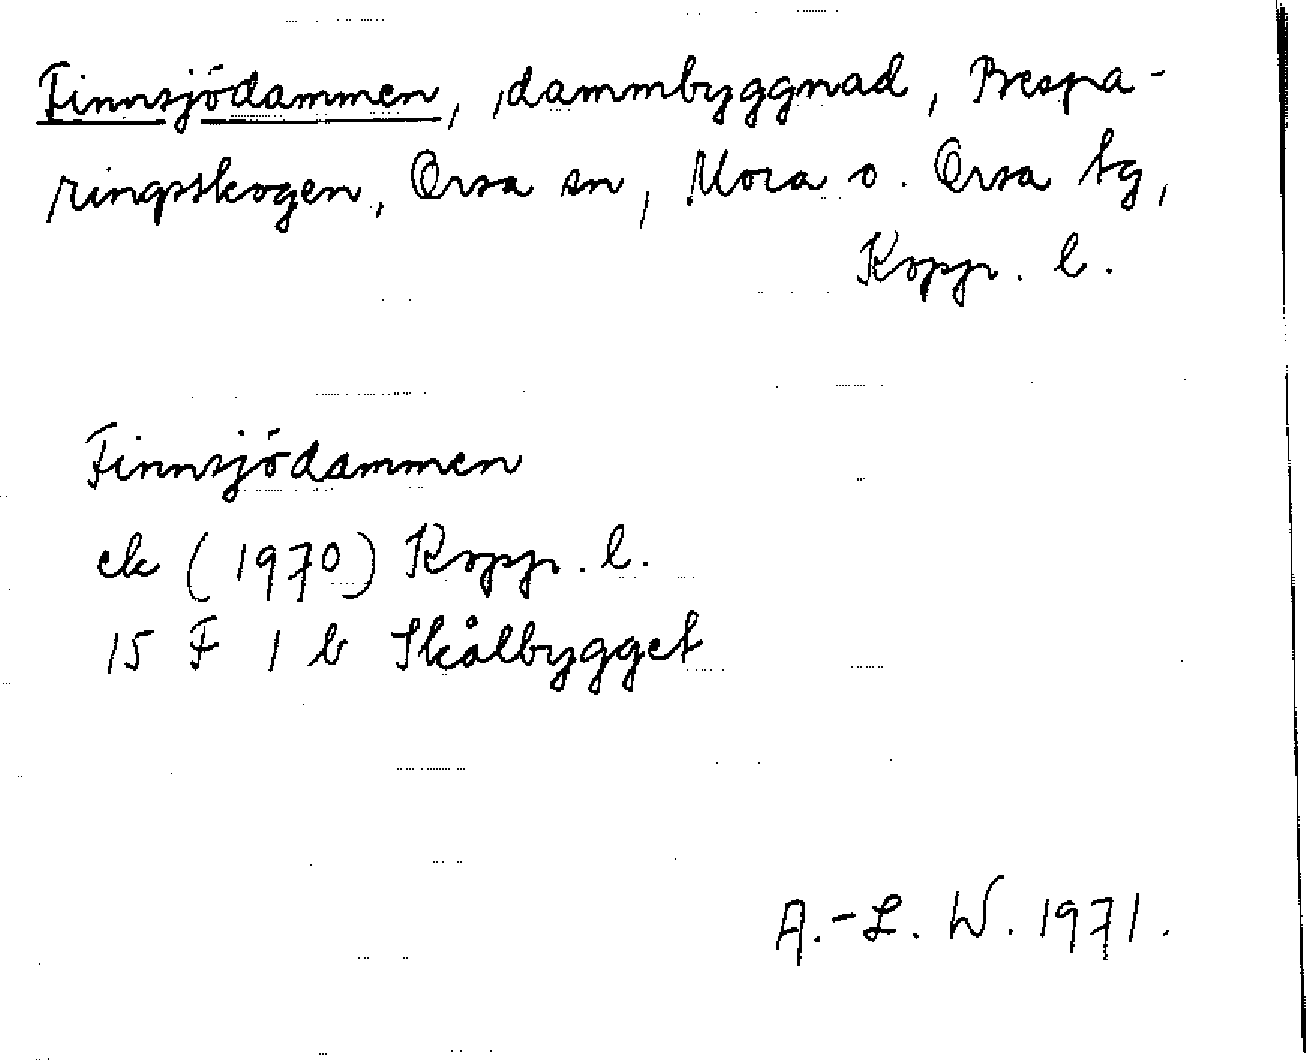 Finnsjödammen, dammbyggnad, Bespa-
ringsskogen, Orsa sn, Mora o. Orsa tg,
Kopp. l.
Finnsjödammen
ek (1970) Kopp. l.
15 F 1 b Skålbygget
A.-L. W. 1971.